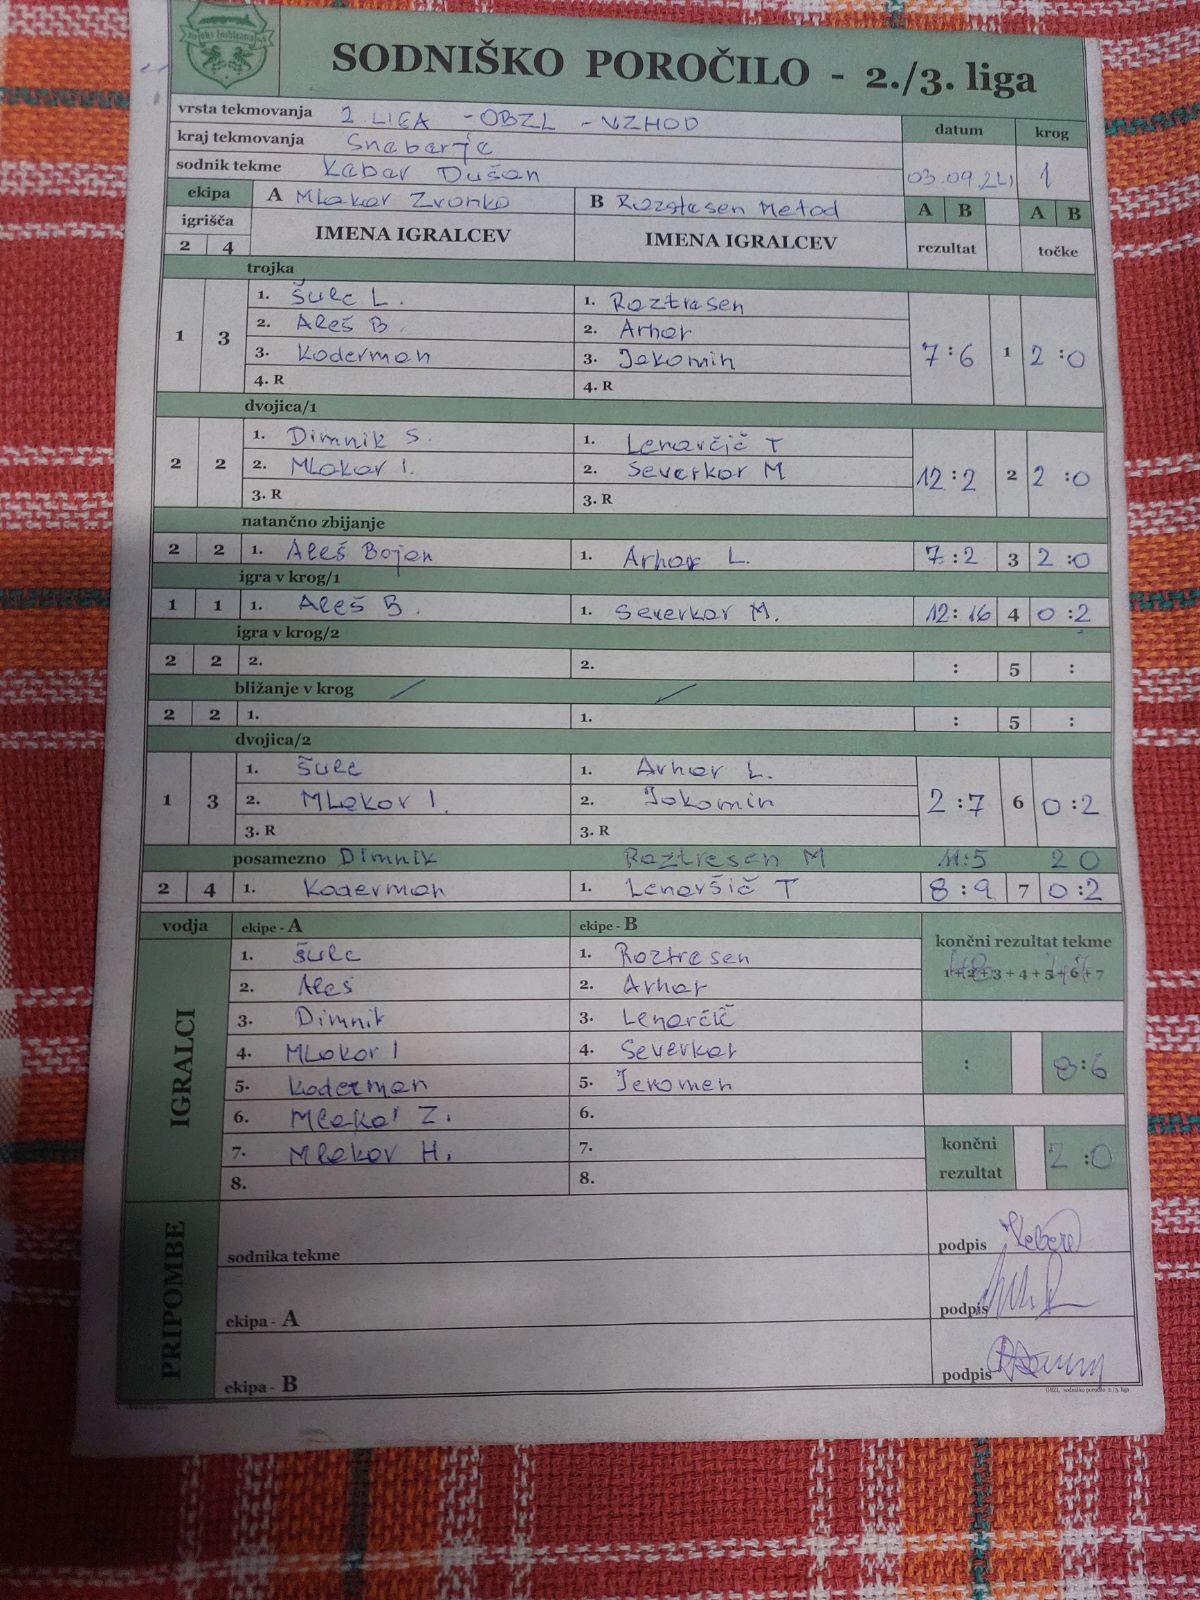 SODNIŠKO POROČILO - 2./3. liga
vrsta tekmovanja 2. LIGA - OBZL - VZHOD datum krog
kraj tekmovanja Sneberje
sodnik tekme Kabar Dušan 03.09.24 1
ekipa A Mlakar Zvonko B Rozstresen Metod A B A B
igrišča IMENA IGRALCEV IMENA IGRALCEV rezultat točke
2 4
trojka
1 3 1. Šulc L. 1. Roztresen 7:6 1 2:0
2. Aleš B. 2. Arhar
3. Koderman 3. Jakomin
4. R 4. R
dvojica/1
2 2 1. Dimnik S. 1. Lenarčič T 12:2 2 2:0
2. Mlakar I. 2. Severkar M
3. R 3. R
natančno zbijanje
2 2 1. Aleš Bojan 1. Arhar L. 7:2 3 2:0
igra v krog/1
1 1 1. Aleš B. 1. Severkar M. 12:16 4 0:2
igra v krog/2
2 2 2. 2. : 5 :
bližanje v krog
2 2 1. 1. : 5 :
dvojica/2
1 3 1. Šulc 1. Arhar L. 2:7 6 0:2
2. Mlakar I. 2. Jakomin
3. R 3. R
posamezno Dimnik Roztresen M 11:5 2 0
2 4 1. Koderman 1. Lenaršič T 8:9 7 0:2
vodja ekipe - A ekipe - B
IGRALCI 1. Šulc 1. Roztresen končni rezultat tekme
2. Aleš 2. Arhar 1+2+3+4+5+6+7
3. Dimnik 3. Lenarčič
4. Mlakar I 4. Severkar : 8:6
5. Koderman 5. Jekomen
6. Mlakar Z. 6.
7. Mlakar H. 7. končni rezultat 2:0
8. 8.
PRIPOMBE
sodnika tekme podpis
ekipa - A podpis
ekipa - B podpis
OBZL sodniško poročilo 2./3. liga